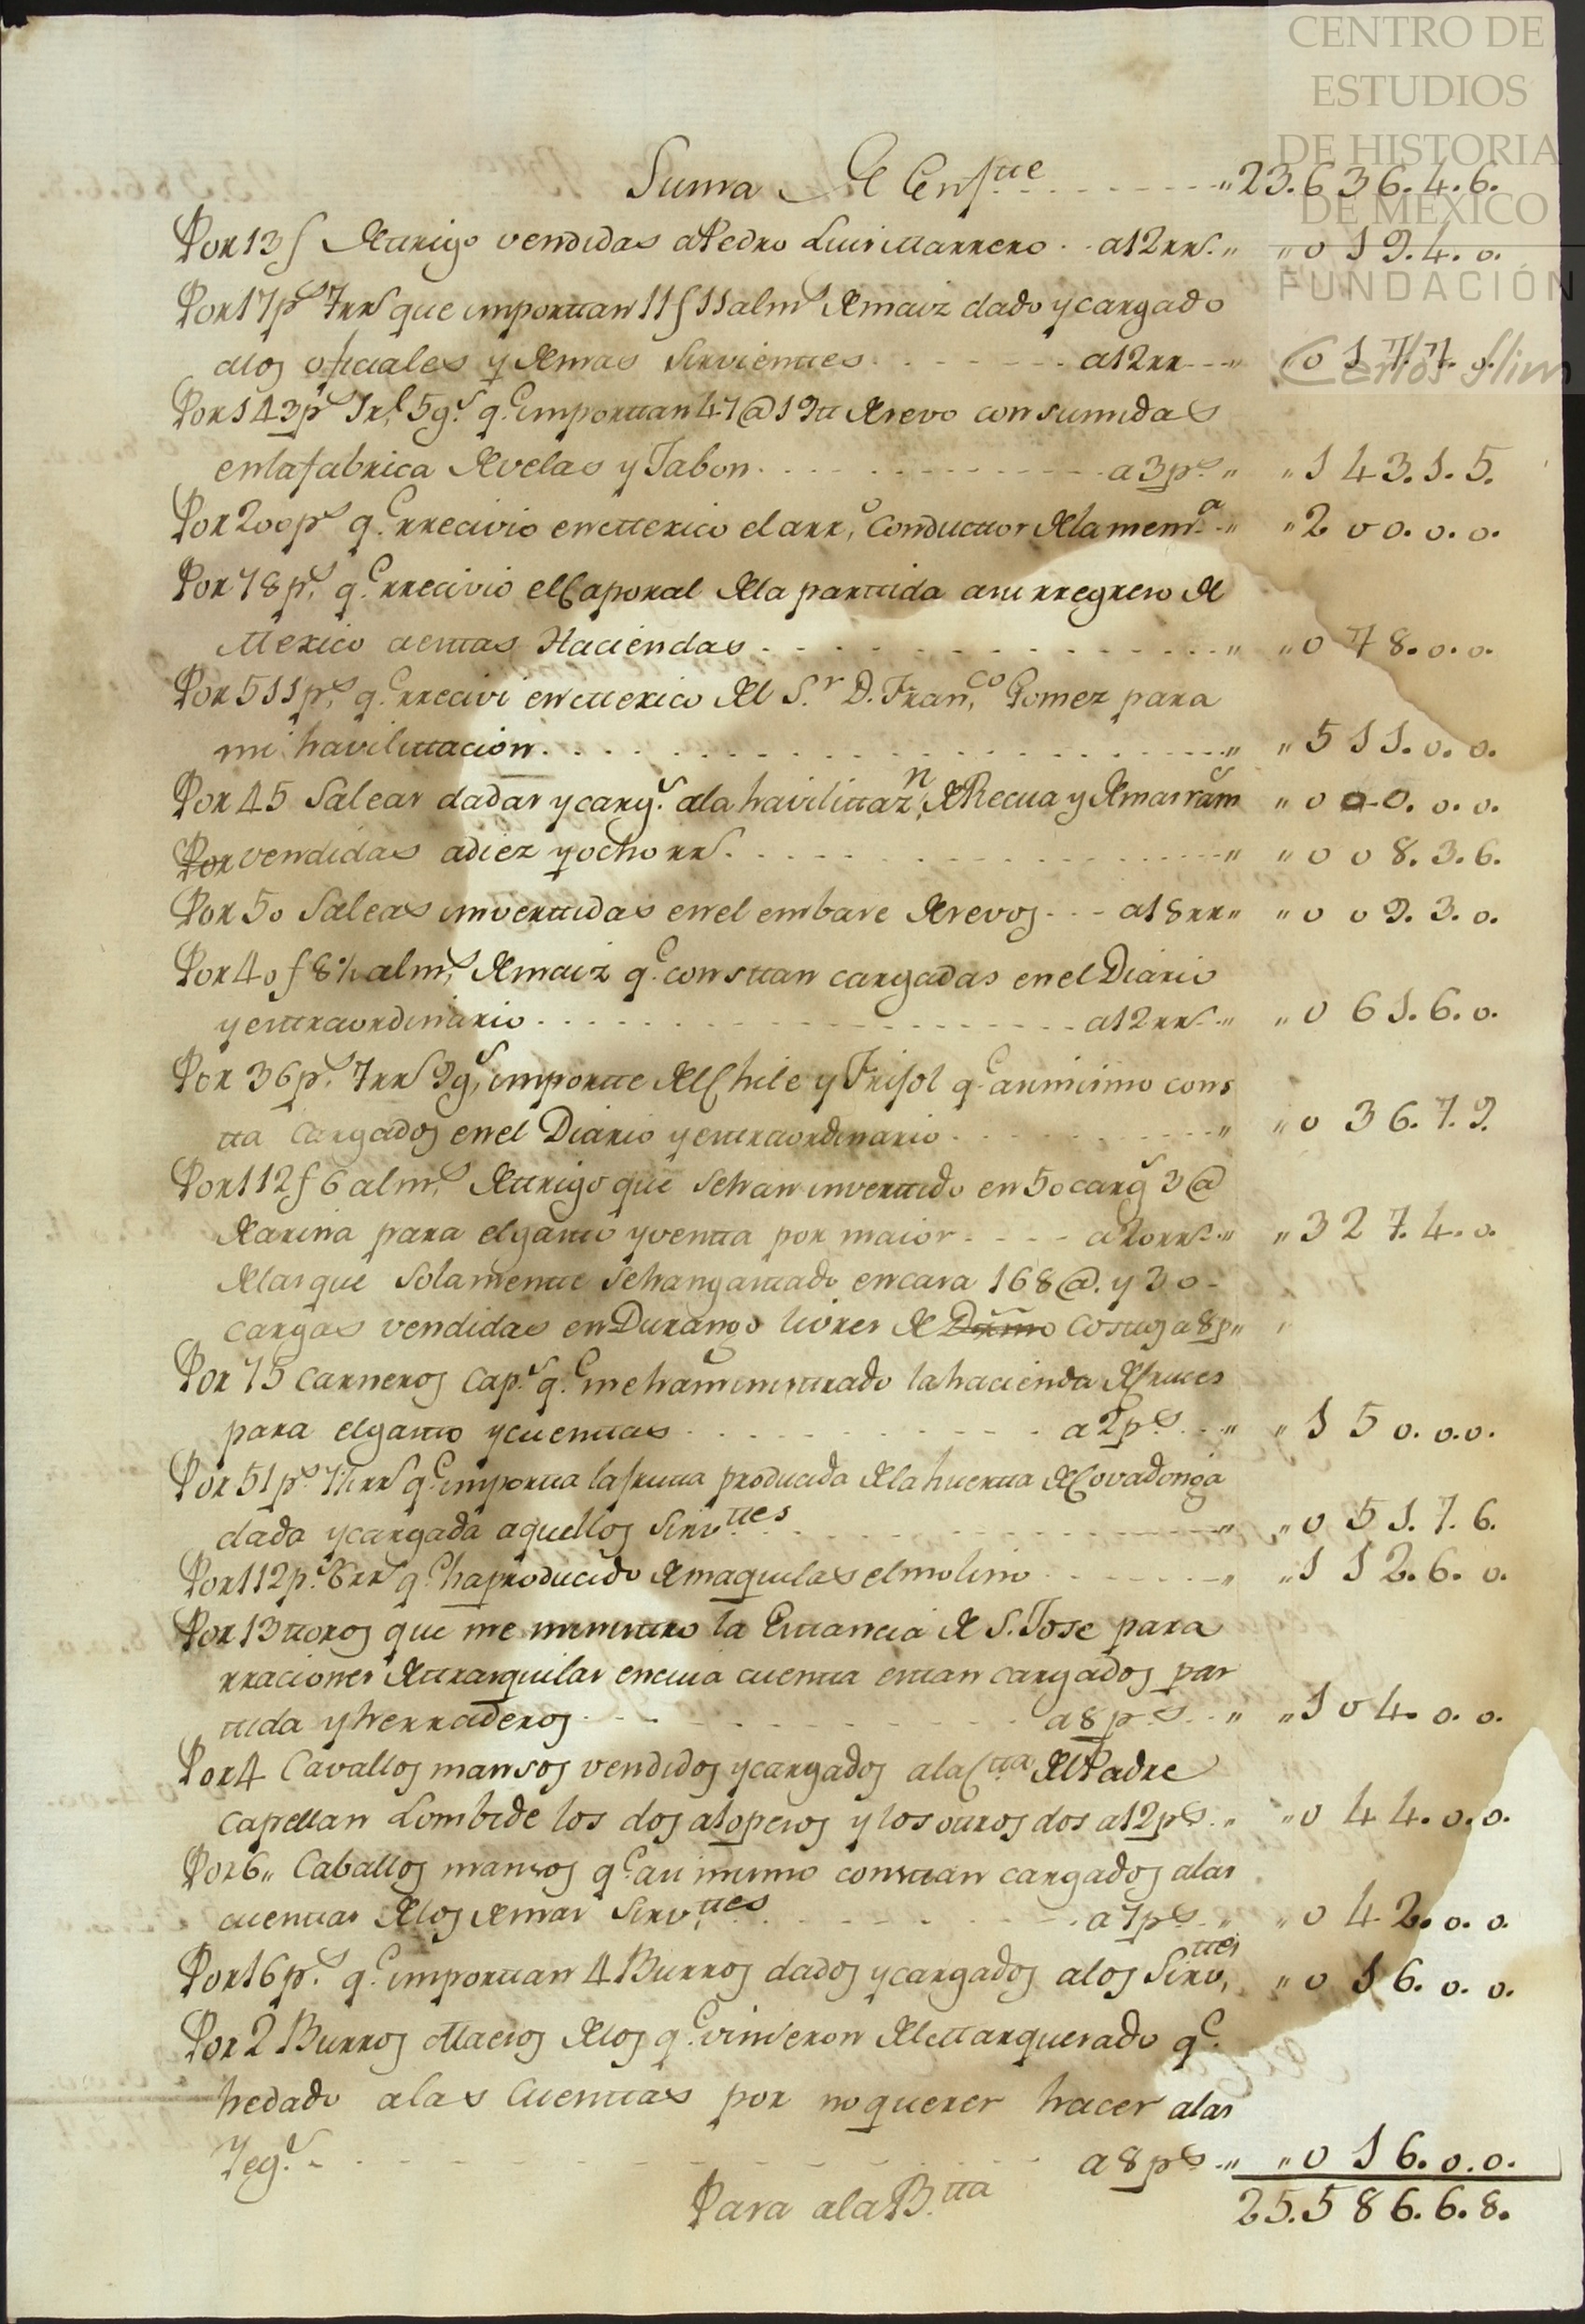 CENTRO DE
ESTUDIOS
DE HISTORIA
DE MÉXICO
FUNDACIÓN
Carlos Slim
Suma De Enfte "23.636.4.6.
Por 13 f De ttrigo vendidas a Pedro Luis Marrero a 12 rrs. " "019.4.0.
Por 17 ps 7 rrs que importtan 11 f 11 alms De maiz dado y cargado
a los oficiales y Demas Sirvienttes a 12 rrs " 017.7.0.
Por 143 ps 1 rl. 5 gs. qe. importtan 47 @ 19 tt De sevo consumidas
en la fabrica De velas y Jabon a 3 ps " "143.1.5.
Por 200 ps qe. rrecivio en Mexico el arro. Conducttor De la mema. " "200.0.0.
Por 78 ps. qe. rrecivio el Caporal De la parttida a su rregreso De
Mexico a esttas Haciendas " "078.0.0.
Por 511 ps. qe. rrecivi en Mexico Del Sr. D. Franco. Gomez para
mi havilittacion " "511.0.0.
Por 45 Saleas dadas y cargs. a la havilittazn. De Recua y De mas ram "000.0.0.
Por vendidas a diez y ocho rrs. " "008.3.6.
Por 50 Saleas inverttidas en el embase De sevos a 18 rrs " "009.3.0.
Por 40 f 8½ alms. De maiz qe. consttan cargadas en el Diario
y exttraordinario a 12 rrs " "061.6.0.
Por 36 ps. 7 rrs 9 gs, importte Del Chile y Frisol qe asimismo cons
tta Cargados en el Diario y exttraordinario " "036.7.9.
Por 112 f 6 alms. De ttrigo que Se han inverttido en 50 cargs 3 @
De arina para el gastto y ventta por maior a 20 rrs " "327.4.0.
De las que Solamentte Se han gasttado en casa 168 @. y 30
Cargas vendidas en Durango livres De Dño Costtos a 8 p "
Por 75 Carneros Caps. qe. me ha ministtrado la hacienda De Cruces
para el gastto y cuenttas a 2 ps " "150.0.0.
Por 51 ps. 7½ rrs qe importta la frutta producida De la huertta De Covadonga
dada y cargada a quellos Sirvttes " "051.7.6.
Por 112 ps. 6 rrs qe. ha producido De maquilas el molino " "112.6.0.
Por 13 ttoros que me ministtro la Esttancia De S. Jose para
rraciones De ttrasquilas en cuia cuentta esttan cargados par
ttida y herraderos a 8 ps " "104.0.0.
Por 4 Cavallos mansos vendidos y cargados a la Ctta Del Padre
Capellan Lombide los dos a 10 pesos y los ottros dos a 12 ps. " "044.0.0.
Por 6 " Caballos mansos qe. asi mismo consttan cargados a las
cuenttas De los Demas Sirvttes a 7 ps " "042.0.0.
Por 16 ps. qe. importtan 4 Burros dados y cargados a los Sirvttes, "016.0.0.
Por 2 Burros Maesos De los qe. vinieron Del Marquesado qe.
he dado a las Cuenttas por no querer hacer a las
Yegs. a 8 ps " "016.0.0.
Pasa a la Btta 25.586.6.8.